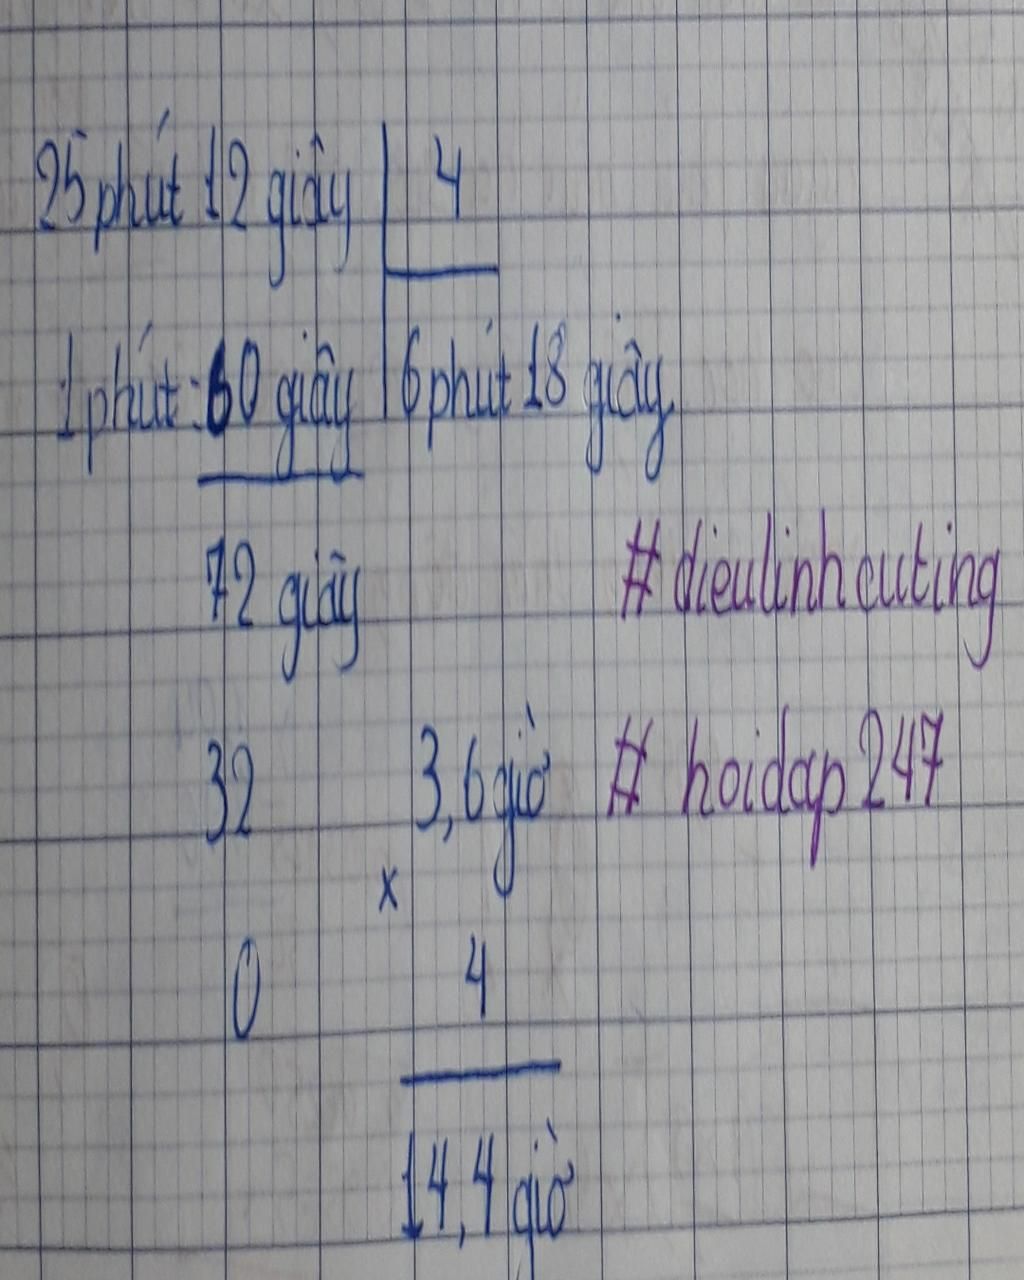 25 phút 12 giây 4
1 phút : 60 giây 6 phút 18 giây
72 giây # dieulinhcuting
32 3,6 giờ # hoidap 247
x
0 4
14,4 giờ